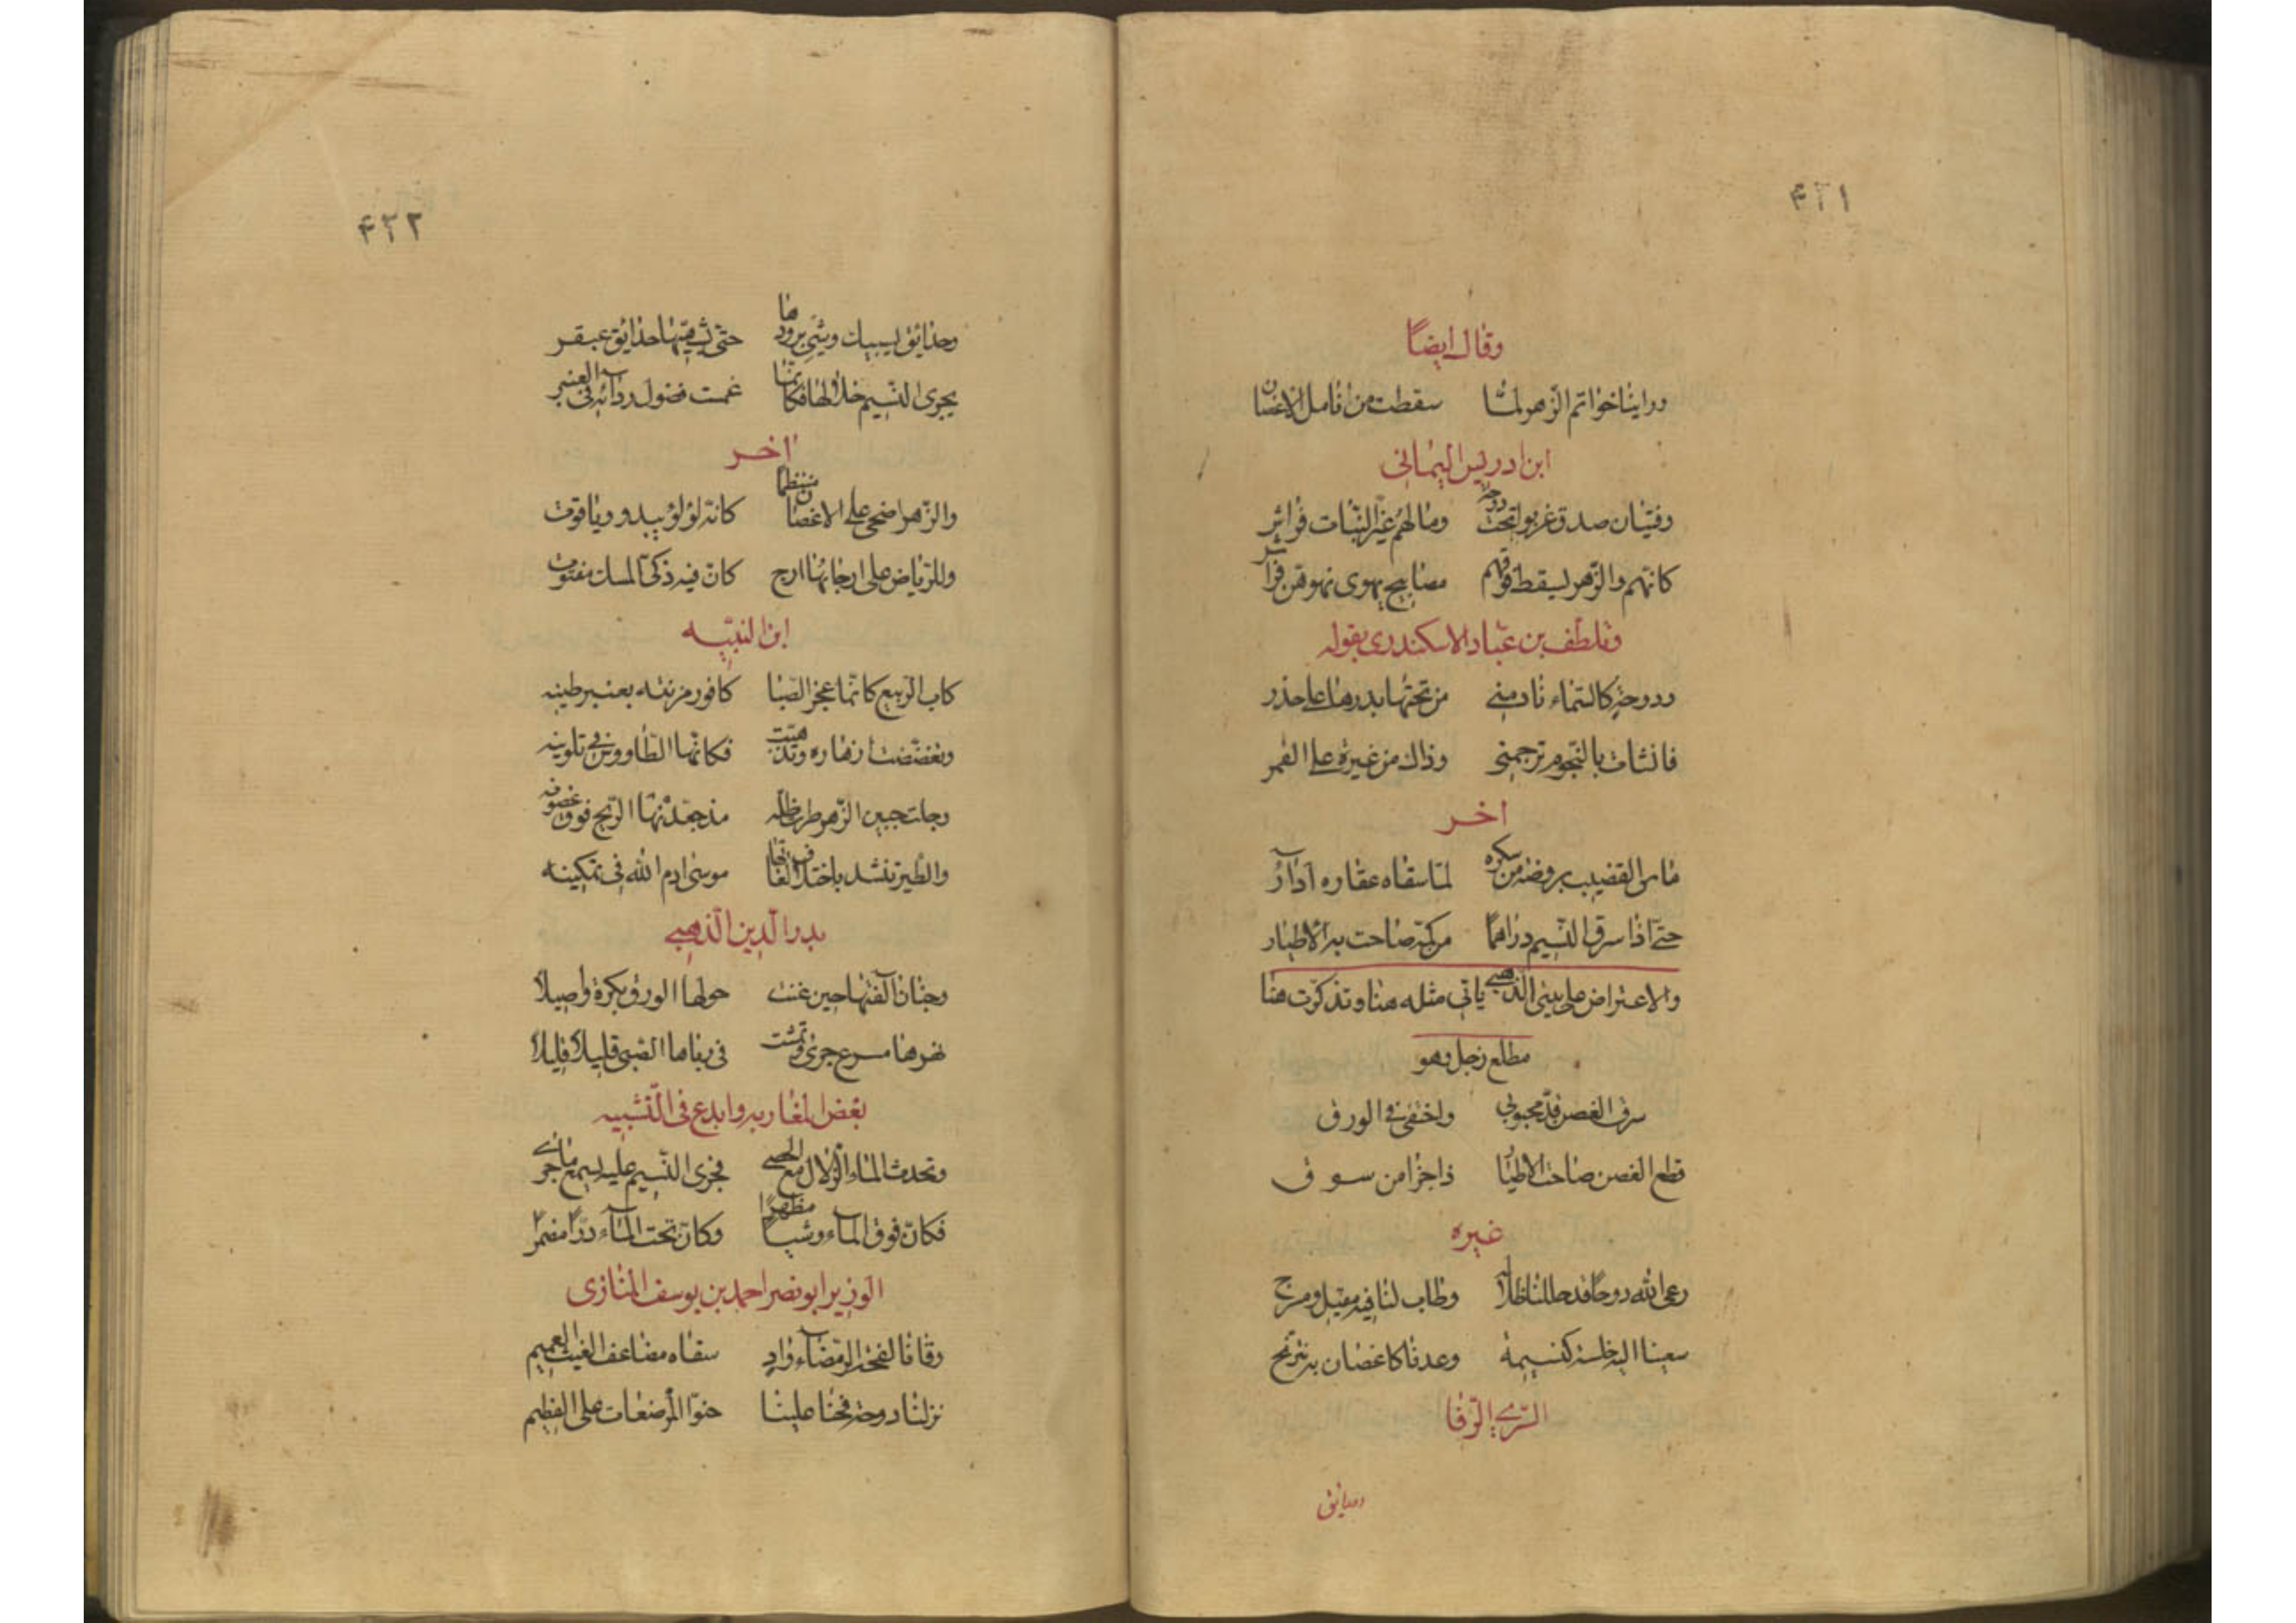 ٤٢١
وقال ايضًا
ورأينا خواتم الزّهر لمّا سقطت من انامل الاغصان
ابن ادريس اليمانى
وفتيان صدق عربوا تحت دوحة وما لهم غير النبات فراش
كانّهم والزّهر يسقط فوقهم مصابيح تهوى نحوهنّ فراش
وتلطّف بن عبّاد الاسكندرى بقوله
ودوحة كالسّماء نادمنى من تحتها بدرها على حذر
فانثات بالنّجوم ترجمنى وذاك من غيرة على القمر
اخر
مال القضيب بروضه من سكره لمّا سقاه عقاره آذار
حتّى اذا سرق النّسيم دراهمًا من كمّه صاحت به الاطيار
والاعتراض على بيتى الذهبى ياتى مثله هنا وتذكّرت هنا
مطلع زجل وهو
سرق الغصن قدّ محبوبى واختفى فى الورق
قطع الغصن صاحت الاطيار ذا جزا من سرق
غيره
رعى الله دوحًا قد حللنا ظلاله وطاب لنا فيه مقيل ومرح
سعينا اليه خلسة كنسيمه وعدنا كاغصان به نترنّح
السّرى الرّفا
وحدائق
٤٢٢
وحدائق يسبيك وشى برودها حتى تشبّهها حدائق عبقر
يجرى النّسيم خلالها فكانّما غمست فضول ردائه فى العنبر
اخر
والزّهر اضحى على الاغصان منتظمًا كانّه لؤلؤ يبدو وياقوت
وللرّياض على ارجائها ارج كانّ فيه ذكىّ المسك مفتوت
ابن النبّيه
كاب الرّبيع كانّما عجن الصّبا كافور مزنته بعنبر طينه
وتفضّضت ازهاره وتذهّبت فكانّها الطّاووس فى تلوينه
وجلت جبين الزّهر طرة ظلّه مذ جعّدتها الرّيح فوق غصونه
والطّير تنشد باختلاف لغاتها موسى ادم الله فى تمكينه
بدر الّدين الّذهبى
وجنان آلفتها حين غنت حولها الورق بكرة واصيلا
نهرها مسرع جرى وتمشت فى رباها الصّبى قليلًا قليلا
بعض المغاربه وابدع فى التّشبيه
وتحدث الماء الزّلال مع الحصى فجرى النّسيم عليه يسمع ما جرى
فكانّ فوق الماء وشيًا مظهرًا وكانّ تحت المآء درًّا مضمرا
الوزير ابو نصر احمد بن يوسف المنازى
وقانا لفحة الرّمضآء واد سقاه مضاعف الغيث العميم
نزلنا دوحه فحنا علينا حنوّ المرضعات على الفطيم